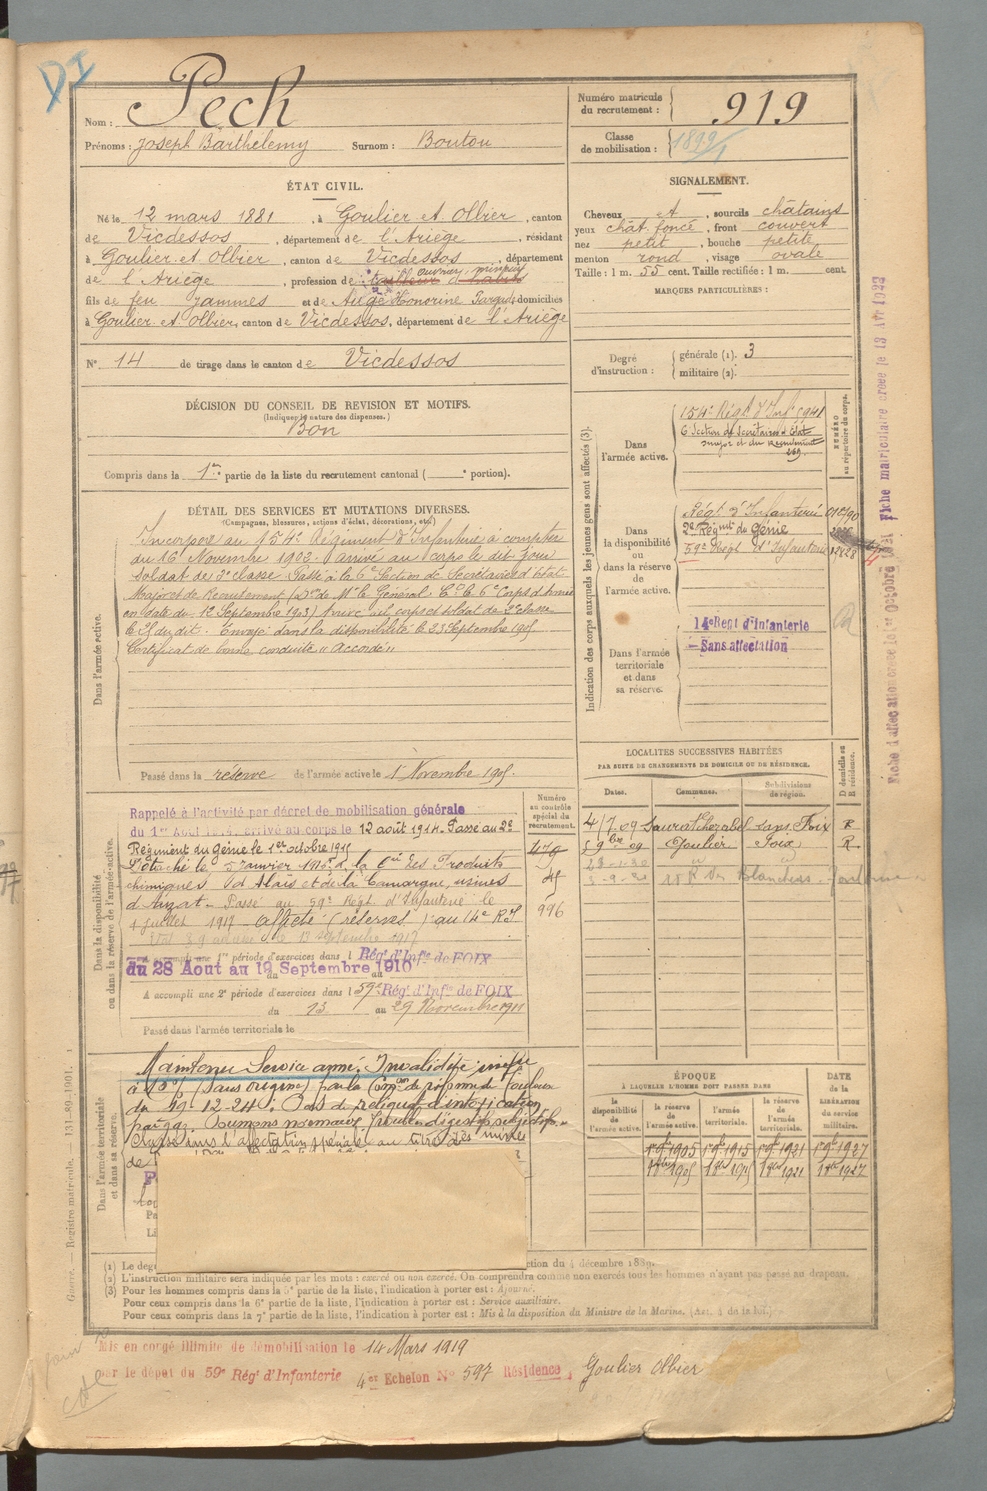 DI
Nom : Pech
Prénoms : Joseph Barthélemy Surnom : Bouton
Numéro matricule du recrutement : 919
Classe de mobilisation : 1899/1
ÉTAT CIVIL.
Né le 12 mars 1881, à Goulier et Olbier, canton
de Vicdessos, département de l'Ariège, résidant
à Goulier et Olbier, canton de Vicdessos, département
de l'Ariège, profession de ouvrier mineur
fils de feu Jammes et de Augé Honorine domiciliés
à Goulier et Olbier, canton de Vicdessos, département de l'Ariège
N° 14 de tirage dans le canton de Vicdessos
SIGNALEMENT.
Cheveux et, sourcils châtains
yeux chât. foncé, front couvert
nez petit, bouche petite
menton rond, visage ovale
Taille : 1 m. 55 cent. Taille rectifiée : 1 m. cent.
MARQUES PARTICULIÈRES :
Degré d'instruction : générale (1). 3
militaire (2).
DÉCISION DU CONSEIL DE REVISION ET MOTIFS.
(Indiquer la nature des dispenses.)
Bon
Compris dans la 1re partie de la liste du recrutement cantonal ( e portion).
DÉTAIL DES SERVICES ET MUTATIONS DIVERSES.
(Campagnes, blessures, actions d'éclat, décorations, etc.)
Dans l'armée active.
Incorporé au 154e Régiment d'Infanterie à compter
du 16 Novembre 1902. arrivé au corps le dit jour
Soldat de 2e classe. Passé à la 6e Section de Secrétaires d'Etat-
Major et de Recrutement (Don de Mr le Général Ct le 6e Corps d'Armée
en date du 12 Septembre 1903) Arrivé au corps et soldat de 2e classe
le dit. Envoyé dans la disponibilité le 23 Septembre 1905
Certificat de bonne conduite "Accordé"
Passé dans la réserve de l'armée active le 1 Novembre 1905.
Indication des corps auxquels les jeunes gens sont affectés (3).
NUMÉRO au répertoire du corps.
Dans l'armée active.
154e Régt d'Infie 5941
6 Section de Secrétaires d'Etat
major et du Recrutement
269
Dans la disponibilité ou dans la réserve de l'armée active.
Régt d'Infanterie
2e Régimt du Génie
59e Régt d'Infanterie
Dans l'armée territoriale et dans sa réserve.
14e Regt d'Infanterie
— Sans affectation
Fiche matriculaire créée le 13 Avr 1923
Fiche d'affectation créée le 1er Octobre 1931
LOCALITES SUCCESSIVES HABITÉES
PAR SUITE DE CHANGEMENTS DE DOMICILE OU DE RÉSIDENCE.
D domicile ou R résidence.
Dates. Communes. Subdivisions de région.
4/7 09 Saurat Foix R
5 9bre 09 Goulier Foix R
Dans la disponibilité ou dans la réserve de l'armée active.
Numéro au contrôle spécial du recrutement.
Rappelé à l'activité par décret de mobilisation générale
du 1er Aout 1914, arrivé au corps le 12 août 1914. Passé au 2e
Régiment du génie le 1er octobre 1915
Détaché le 5 Janvier à la Cie des Produits
chimiques d'Alais et de la Camargue, usines
d'Auzat. Passé au 59e Régt d'Infanterie le
1 juillet 1917. Affecté (réserves) au 14e R.I
996
A accompli une 1re période d'exercices dans l Régt d'Infie de FOIX
du 28 Aout au 19 Septembre 1910
A accompli une 2e période d'exercices dans l 59e Régt d'Infie de FOIX
du 13 au 29 Novembre 1911
Passé dans l'armée territoriale le
Dans l'armée territoriale et dans sa réserve.
Maintenu Service armé. Invalidité infre
à 10% (sans origine) par la Comon de réforme de Toulouse
du 12-24 : Pas de reliquat d'intoxication
par gaz. Poumons normaux, troubles digestifs subjectifs.
Classé dans l'affectation spéciale au titre des mines
de
ÉPOQUE
À LAQUELLE L'HOMME DOIT PASSER DANS
DATE de la LIBÉRATION du service militaire.
la disponibilité de l'armée active. la réserve de l'armée active. l'armée territoriale. la réserve de l'armée territoriale.
1er 9bre 1905 1er 9bre 1915 1er 9bre 1921 1er 9bre 1927
1er 8bre 1905 1er 8bre 1915 1er 8bre 1921 1er 8bre 1927
(1) Le deg ction du 4 décembre 1889.
(2) L'instruction militaire sera indiquée par les mots : exercé ou non exercé. On comprendra comme non exercés tous les hommes n'ayant pas passé au drapeau.
(3) Pour les hommes compris dans la 5e partie de la liste, l'indication à porter est : Ajourné.
Pour ceux compris dans la 6e partie de la liste, l'indication à porter est : Service auxiliaire.
Pour ceux compris dans la 7e partie de la liste, l'indication à porter est : Mis à la disposition du Ministre de la Marine.
Guerre. — Registre matricule. — 131-89-1901.
Mis en congé illimité de démobilisation le 14 Mars 1919
par le dépôt du 59e Régt d'Infanterie 4er Echelon N° 597 Résidence, Goulier Olbier